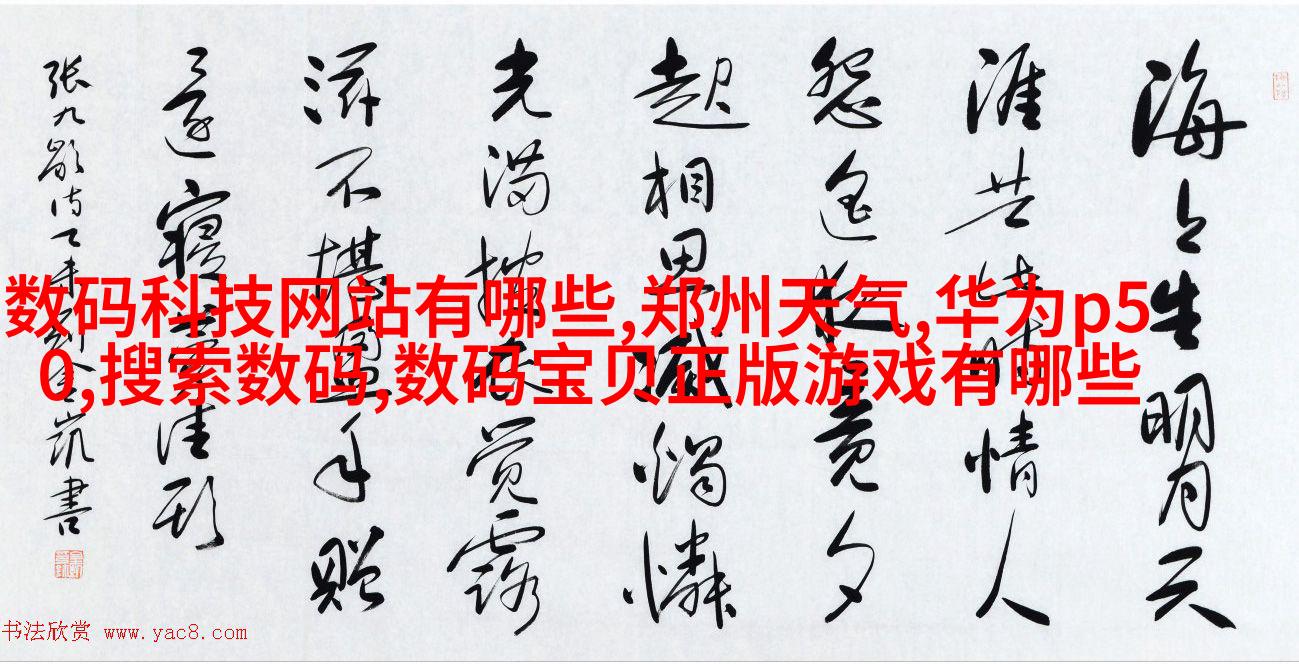 海上生明月天
涯共此時情人
怨遥夜竟夕
起相思滅燭憐
光满披衣觉露
滋不堪盈手贈
還寝夢佳期
张九龄诗乙未
凯書
数码科技网站有哪些,郑州天气,华为p5
0,搜索数码,数码宝贝正版游戏有哪些
书法欣赏 www.yac8.com